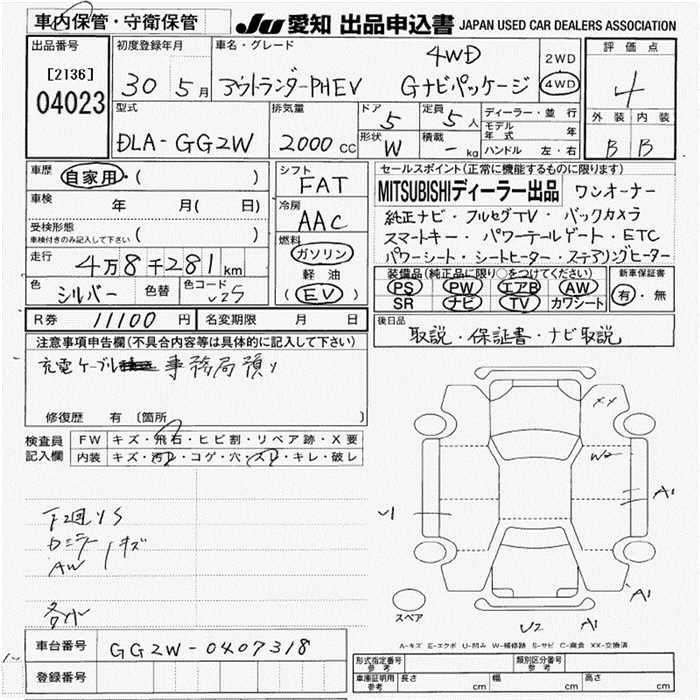 車内保管・守衛保管
JU 愛知 出品申込書 JAPAN USED CAR DEALERS ASSOCIATION
出品番号
[2136]
04023
初度登録年月
30 5月
車名・グレード
アウトランダーPHEV
4WD
Gナビパッケージ
2WD
4WD
評価点
4
外装 内装
B B
型式
DLA-GG2W
排気量
2000 CC
ドア
5
定員
5人
形状
W
積載
- kg
ディーラー・並行
モデル年式 年
ハンドル 左・右
車歴
自家用・( )
車検 年 月( 日)
受検形態
車検付きのみ記入して下さい ( )
走行
4万8千281km
色
シルバー
色替
色コード
U25
シフト
FAT
冷房
AAC
燃料
ガソリン
軽油
(EV)
セールスポイント(正常に機能するものに限ります)
MITSUBISHIディーラー出品 ワンオーナー
純正ナビ・フルセグTV・バックカメラ
スマートキー・パワーテールゲート・ETC
パワーシート・シートヒーター・ステアリングヒーター
装備品(純正品に限り○をつけてください)
PS PW エアB AW
SR ナビ TV カワシート
新車保証書
有・無
R券 11100円 名変期限 月 日
後日品
取説・保証書・ナビ取説
注意事項申告欄(不具合内容等は具体的に記入して下さい)
充電ケーブル 事務局預り
修復歴 有 〔箇所 〕
検査員記入欄
FW キズ・飛石・ヒビ割・リペア跡・X要
内装 キズ・汚れ・コゲ・穴・スレ・キレ・破レ
キズ
AW
XX
W2
A1
A1
U2 A1
スペア
A-キズ E-エクボ U-凹み W-補修跡 S-サビ C-腐食 XX-交換済
車台番号 GG2W-0407318
登録番号
形式指定番号 参考
類別区分番号 参考
車庫証明用 参考 長さ cm 幅 cm 高さ cm